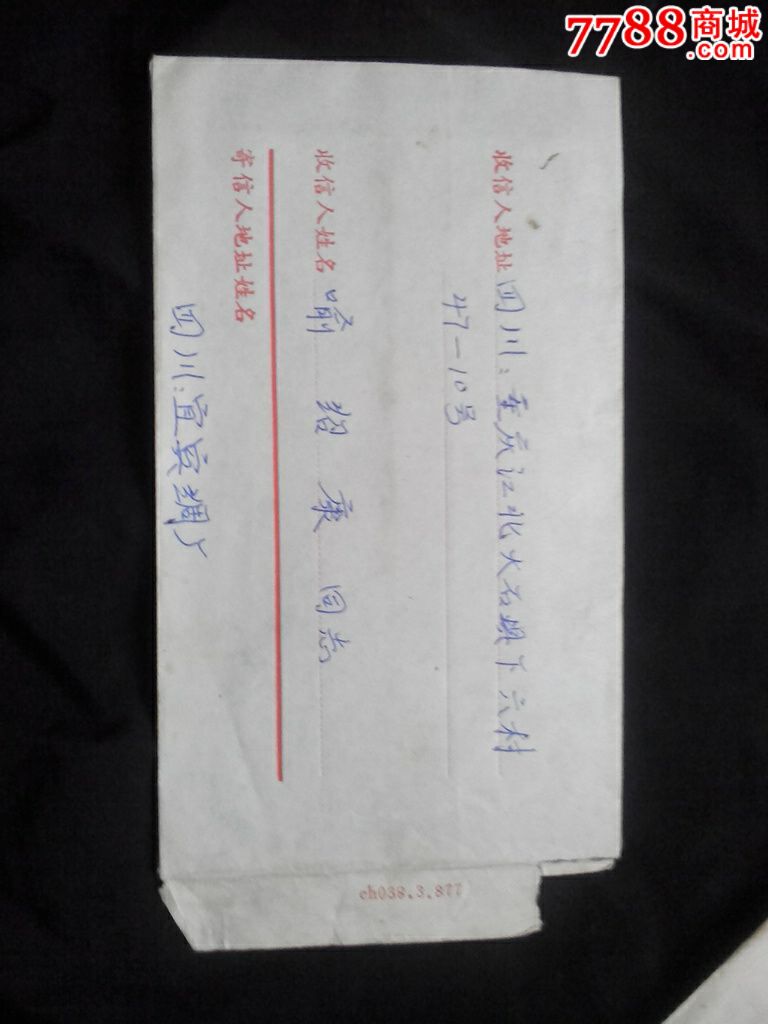 7788商城
.com
收信人地址 四川：重庆江北大石坝下六村
47-10号
收信人姓名 喻绍康同志
寄信人地址姓名
四川：宜宾绸厂
ch038.3.877